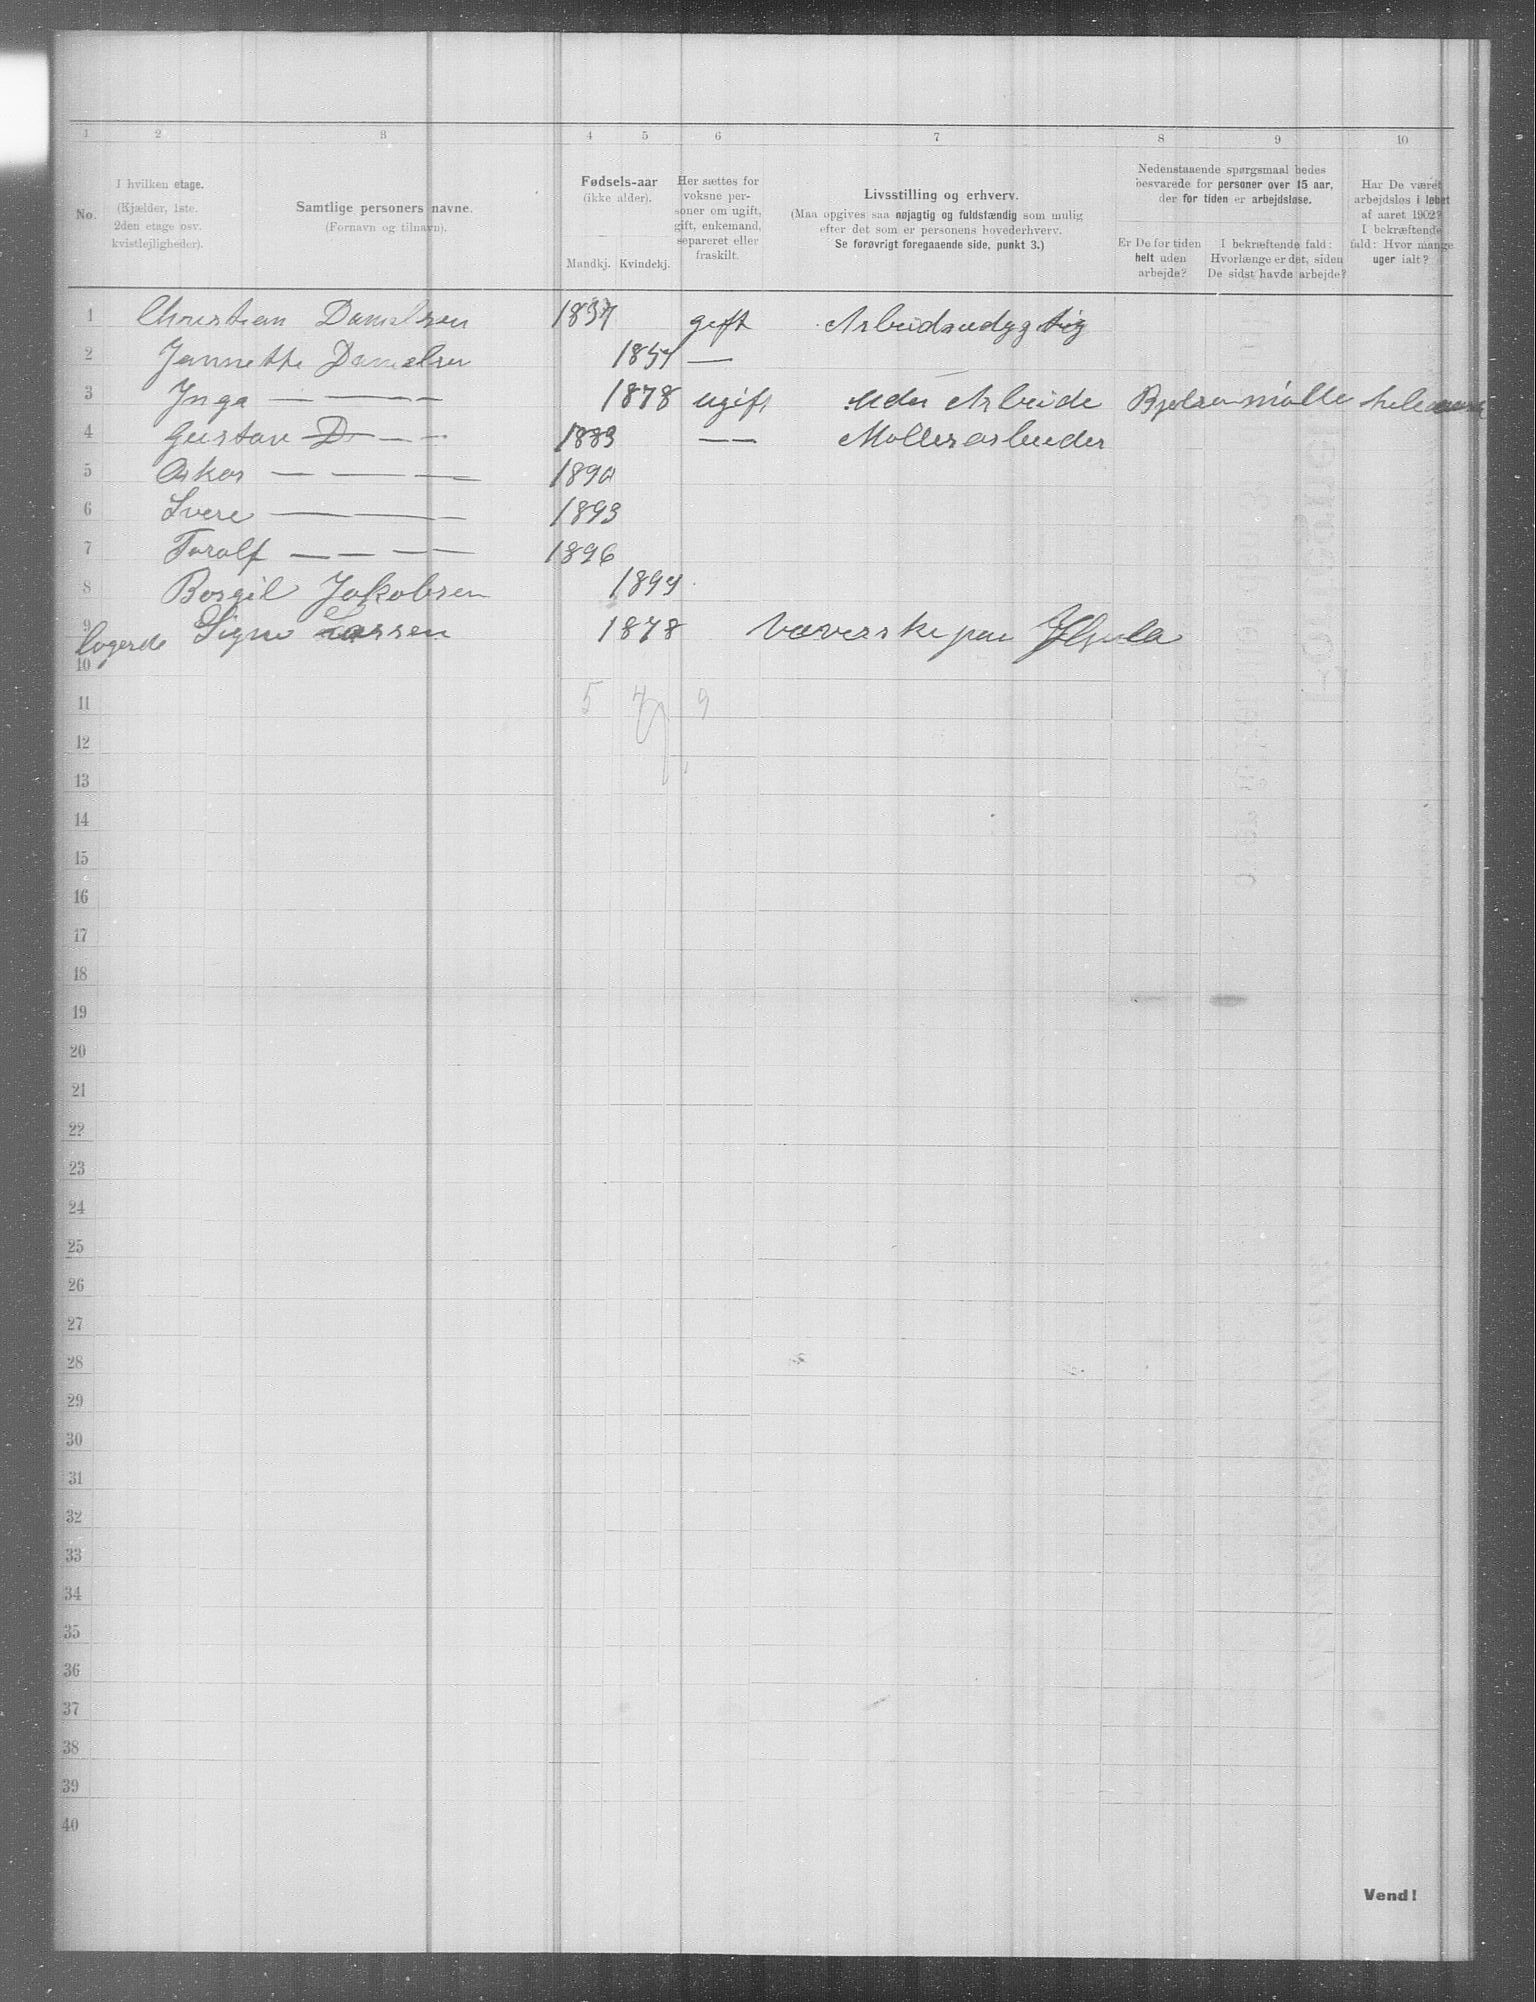 1 2 3 4 5 6 7 8 9 10
No.
I hvilken etage.
(Kjælder, 1ste.
2den etage osv.
kvistlejligheder).
Samtlige personers navne.
(Fornavn og tilnavn).
Fødsels-aar
(ikke alder).
Mandkj. Kvindekj.
Her sættes for
voksne per-
soner om ugift,
gift, enkemand,
separeret eller
fraskilt.
Livsstilling og erhverv.
(Maa opgives saa nøjagtig og fuldstændig som mulig
efter det som er personens hovederhverv.
Se forøvrigt foregaaende side, punkt 3.)
Nedenstaaende spørgsmaal bedes
besvarede for personer over 15 aar,
der for tiden er arbejdsløse.
Er De for tiden
helt uden
arbejde?
I bekræftende fald:
Hvorlænge er det, siden
De sidst havde arbejde?
Har De været
arbejdsløs i løbet
af aaret 1902?
I bekræftende
fald: Hvor mange
uger ialt?
1 Christian Danielsen 1837 gift Arbeidsudygtig
2 Jannette Danielsen 1854 —
3 Ynga — — — — 1878 ugift uden Arbeide Bjølsenmølle
4 Gustav D — — 1883 — — Møllerarbeider
5 Oskar — — — — 1890
6 Svere — — — — 1893
7 Toralf — — — — 1896
8 Borgil Jakobsen 1899
9 logerde Signe Larsen 1878 Væverske paa Hjula
10
11 5 4 9
12
13
14
15
16
17
18
19
20
21
22
23
24
25
26
27
28
29
30
31
32
33
34
35
36
37
38
39
40
Vend!